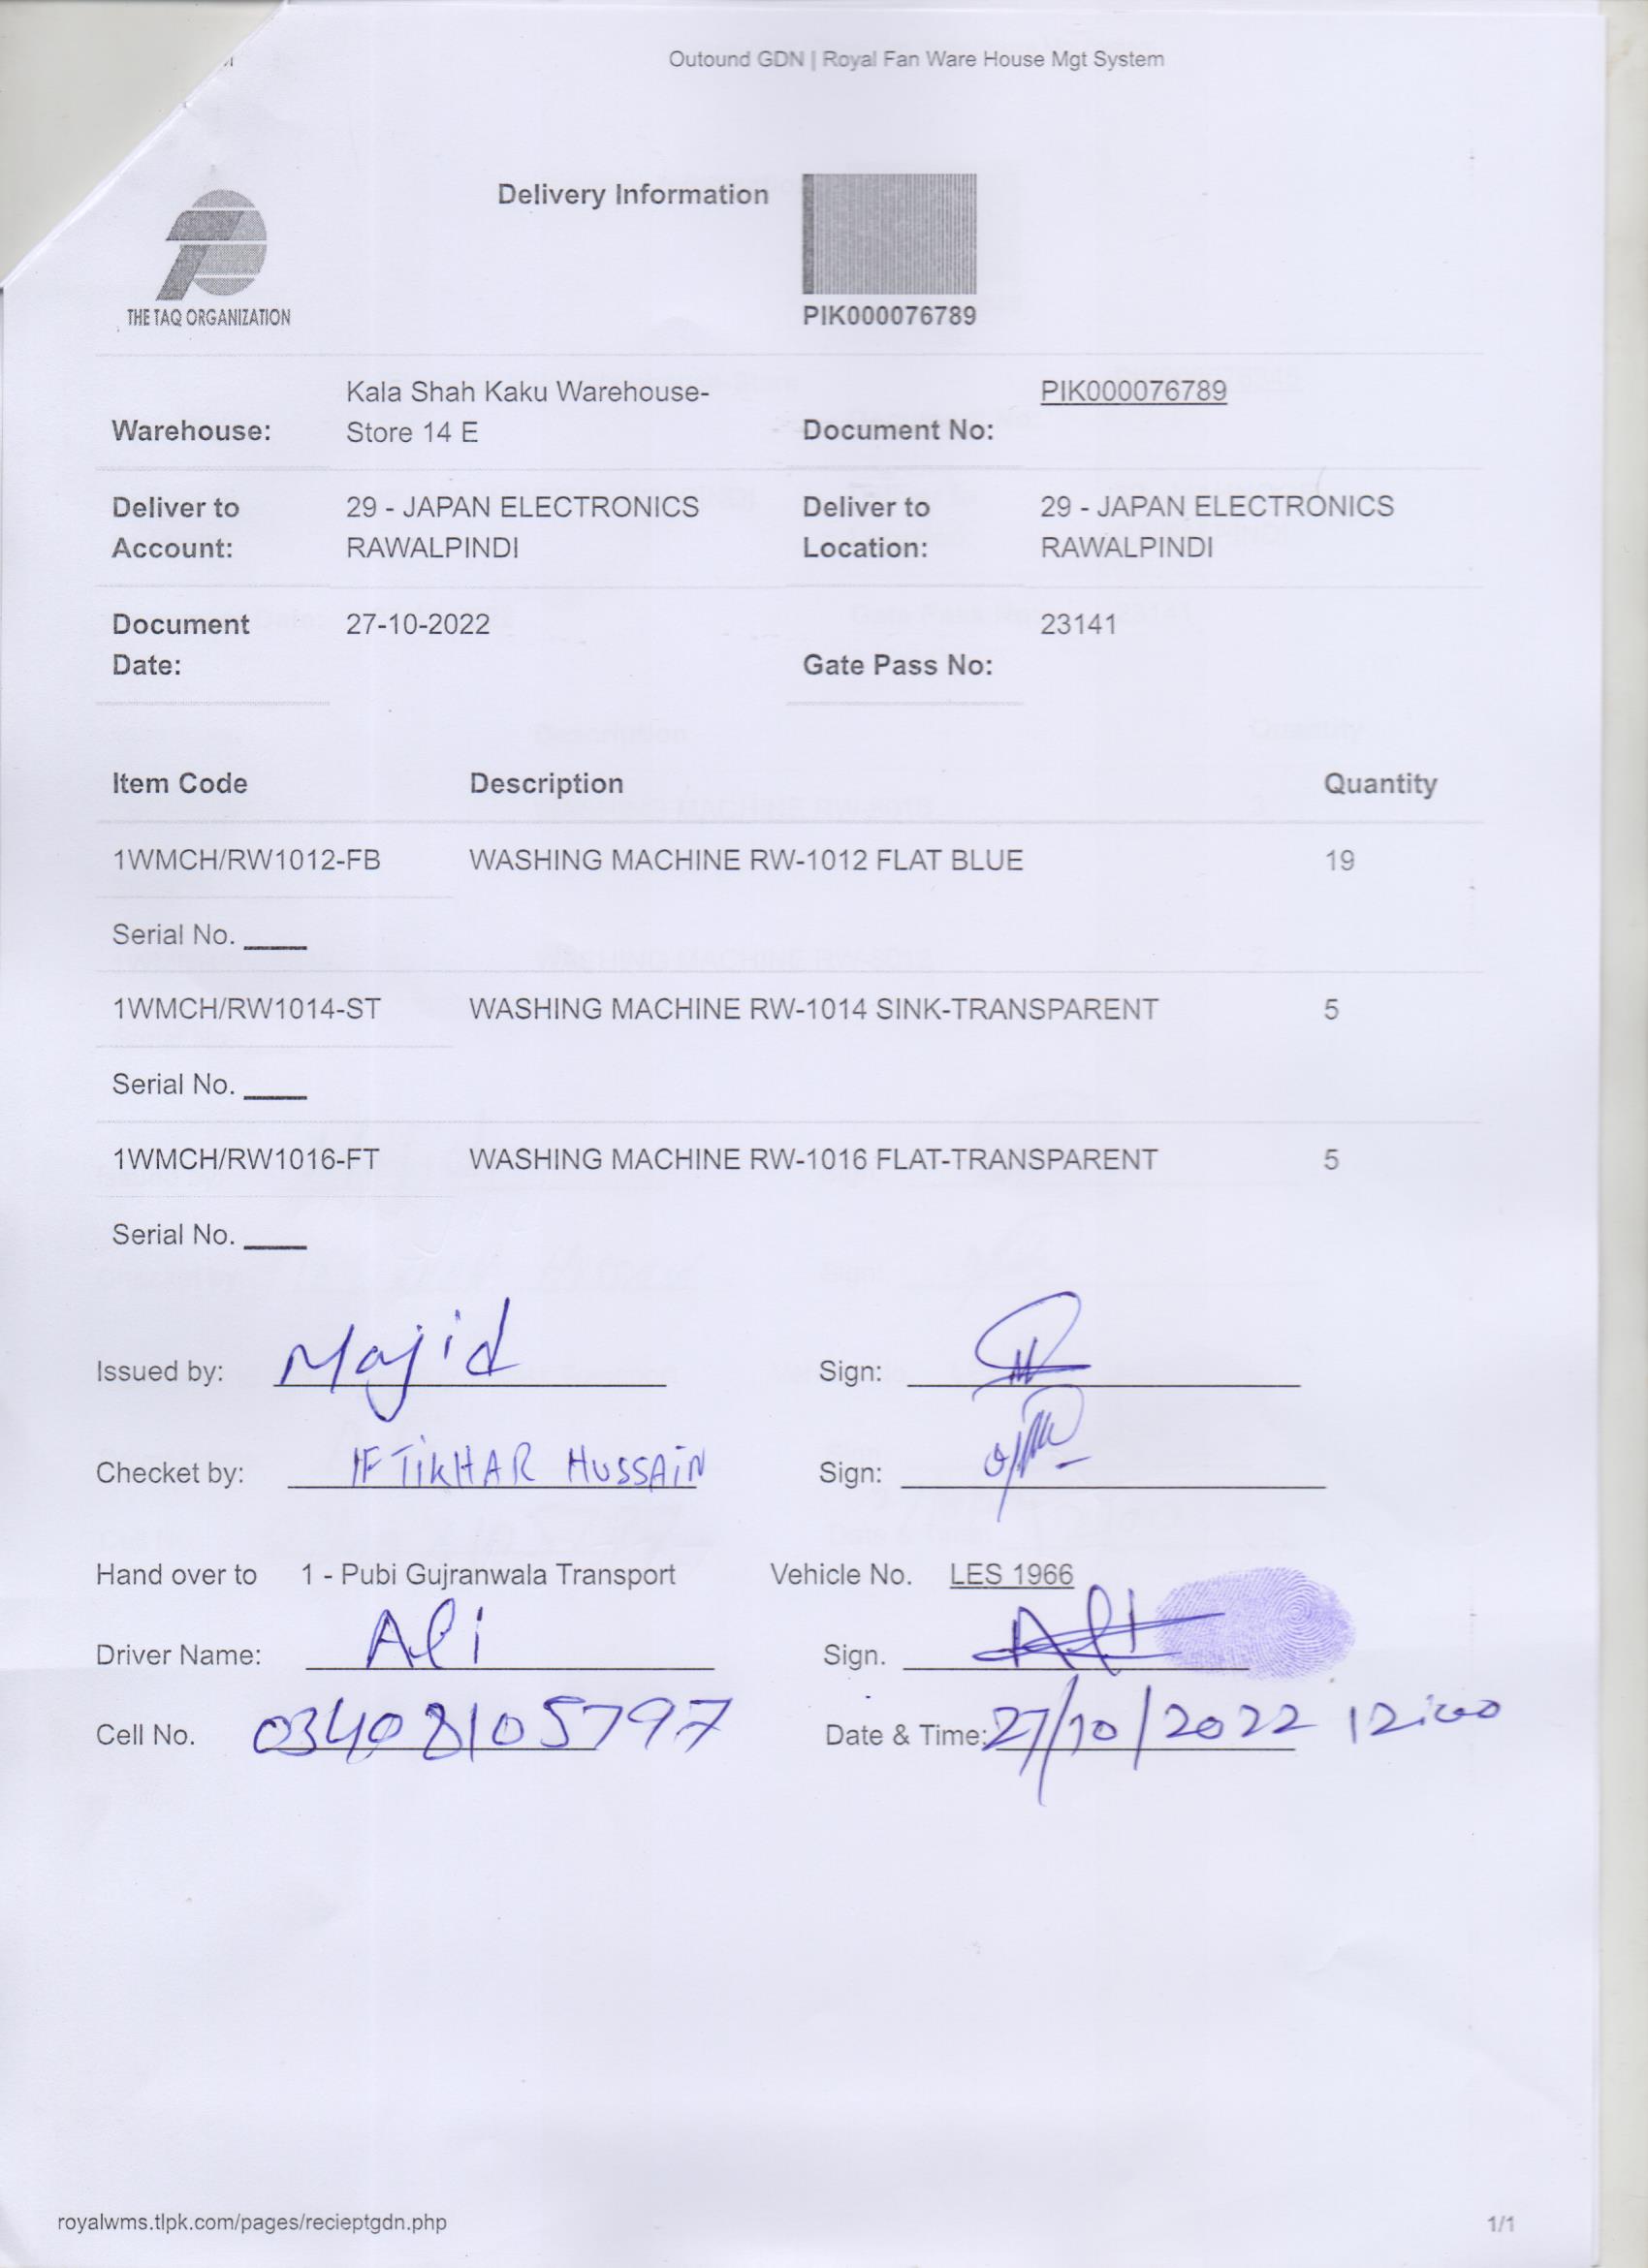 Outound GDN | Royal Fan Ware House Mgt System
Delivery Information
THE TAQ ORGANIZATION
PIK000076789
Warehouse: Kala Shah Kaku Warehouse-
Store 14 E
Document No: PIK000076789
Deliver to
Account: 29 - JAPAN ELECTRONICS
RAWALPINDI
Deliver to
Location: 29 - JAPAN ELECTRONICS
RAWALPINDI
Document
Date: 27-10-2022
Gate Pass No: 23141
Item Code Description Quantity
1WMCH/RW1012-FB WASHING MACHINE RW-1012 FLAT BLUE 19
Serial No. ____
1WMCH/RW1014-ST WASHING MACHINE RW-1014 SINK-TRANSPARENT 5
Serial No. ____
1WMCH/RW1016-FT WASHING MACHINE RW-1016 FLAT-TRANSPARENT 5
Serial No. ____
Issued by: Majid Sign:
Checket by: IFTIKHAR HUSSAIN Sign:
Hand over to 1 - Pubi Gujranwala Transport Vehicle No. LES 1966
Driver Name: Ali Sign. Ali
Cell No. 03408105797 Date & Time: 27/10/2022 12:00
royalwms.tlpk.com/pages/recieptgdn.php 1/1